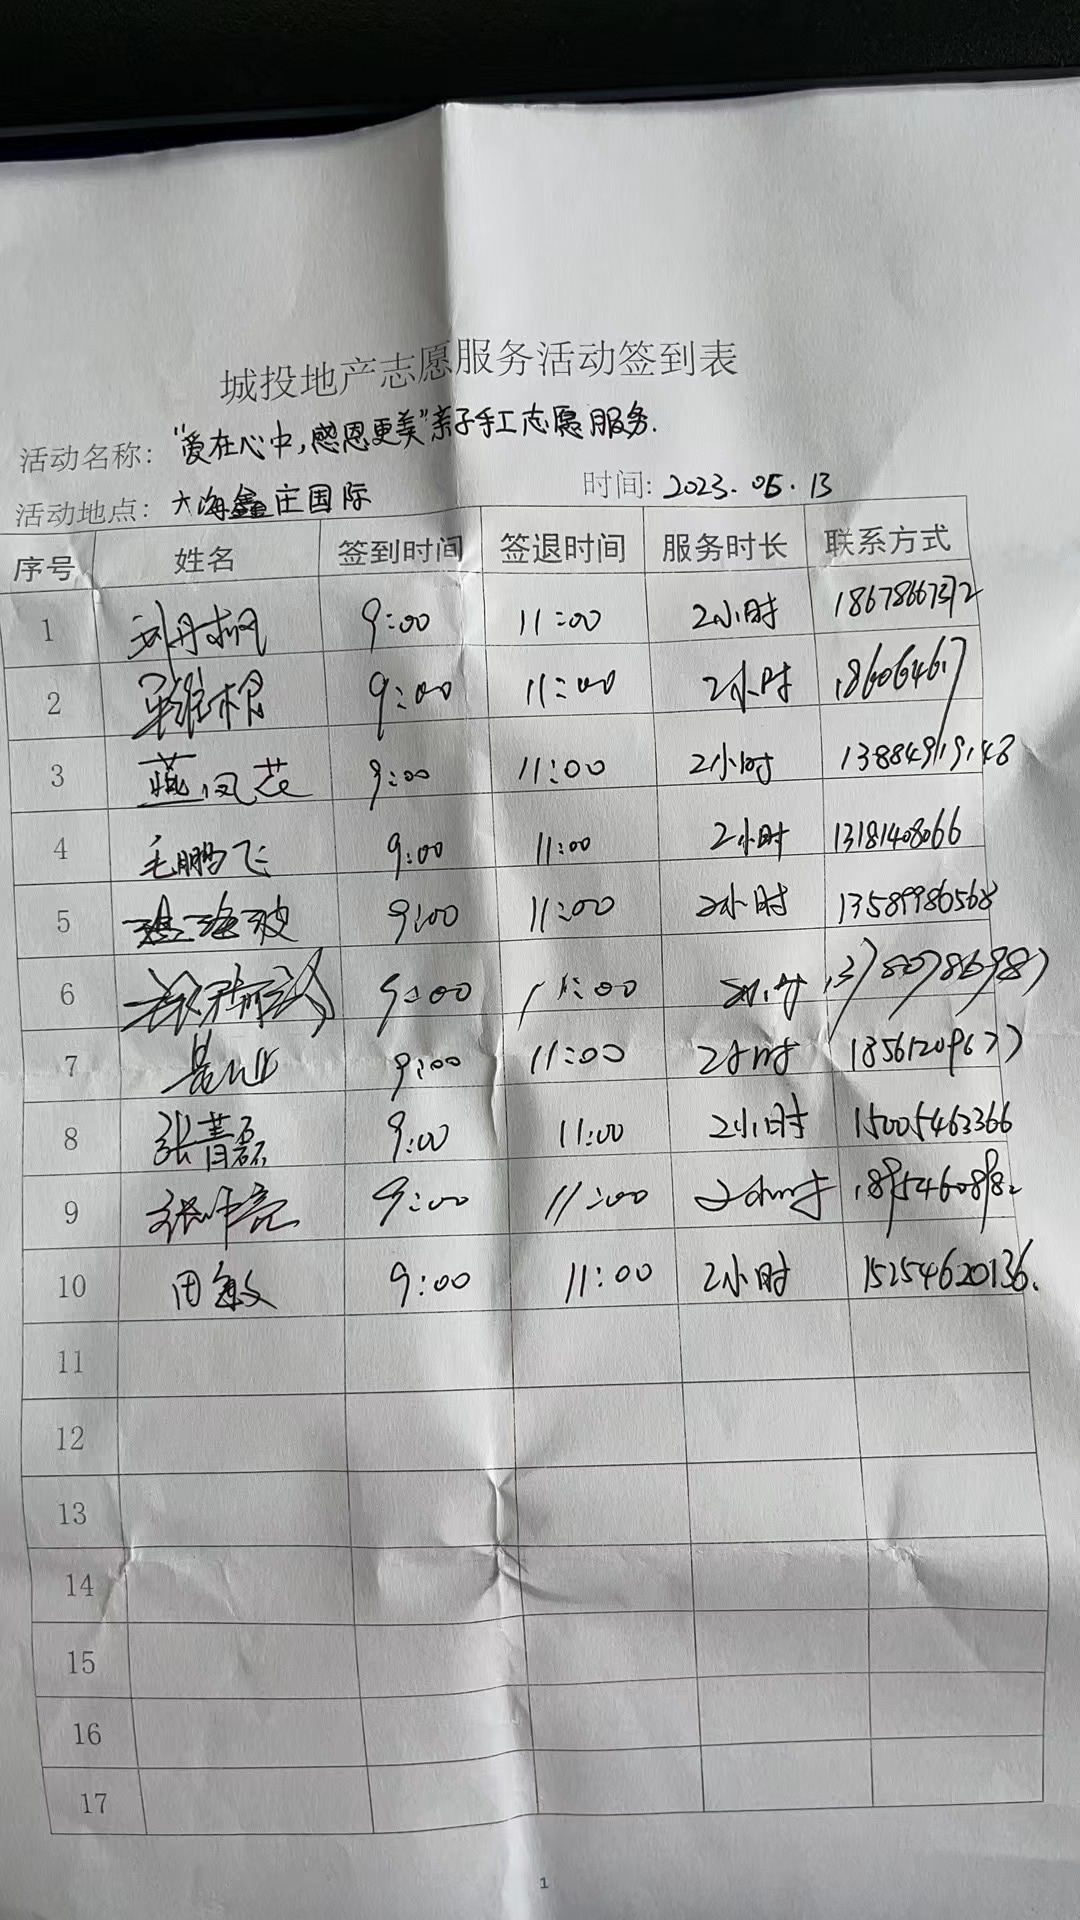 城投地产志愿服务活动签到表
活动名称: “爱在心中,感恩更美”亲子手工志愿服务.
活动地点: 大海鑫庄国际 时间: 2023.05.13
序号 姓名 签到时间 签退时间 服务时长 联系方式
1 刘丹枫 9:00 11:00 2小时
2 9:00 11:00 2小时
3 燕凤花 9:00 11:00 2小时 13884919148
4 毛鹏飞 9:00 11:00 2小时 13181408066
5 9:00 11:00 2小时 13589986568
6 9:00 11:00 2小时 13780786987
7 9:00 11:00 2小时 18561209677
8 张菁磊 9:00 11:00 2小时 15005463366
9 9:00 11:00 2小时 18954608982
10 田敏 9:00 11:00 2小时 15254620136.
11
12
13
14
15
16
17
1